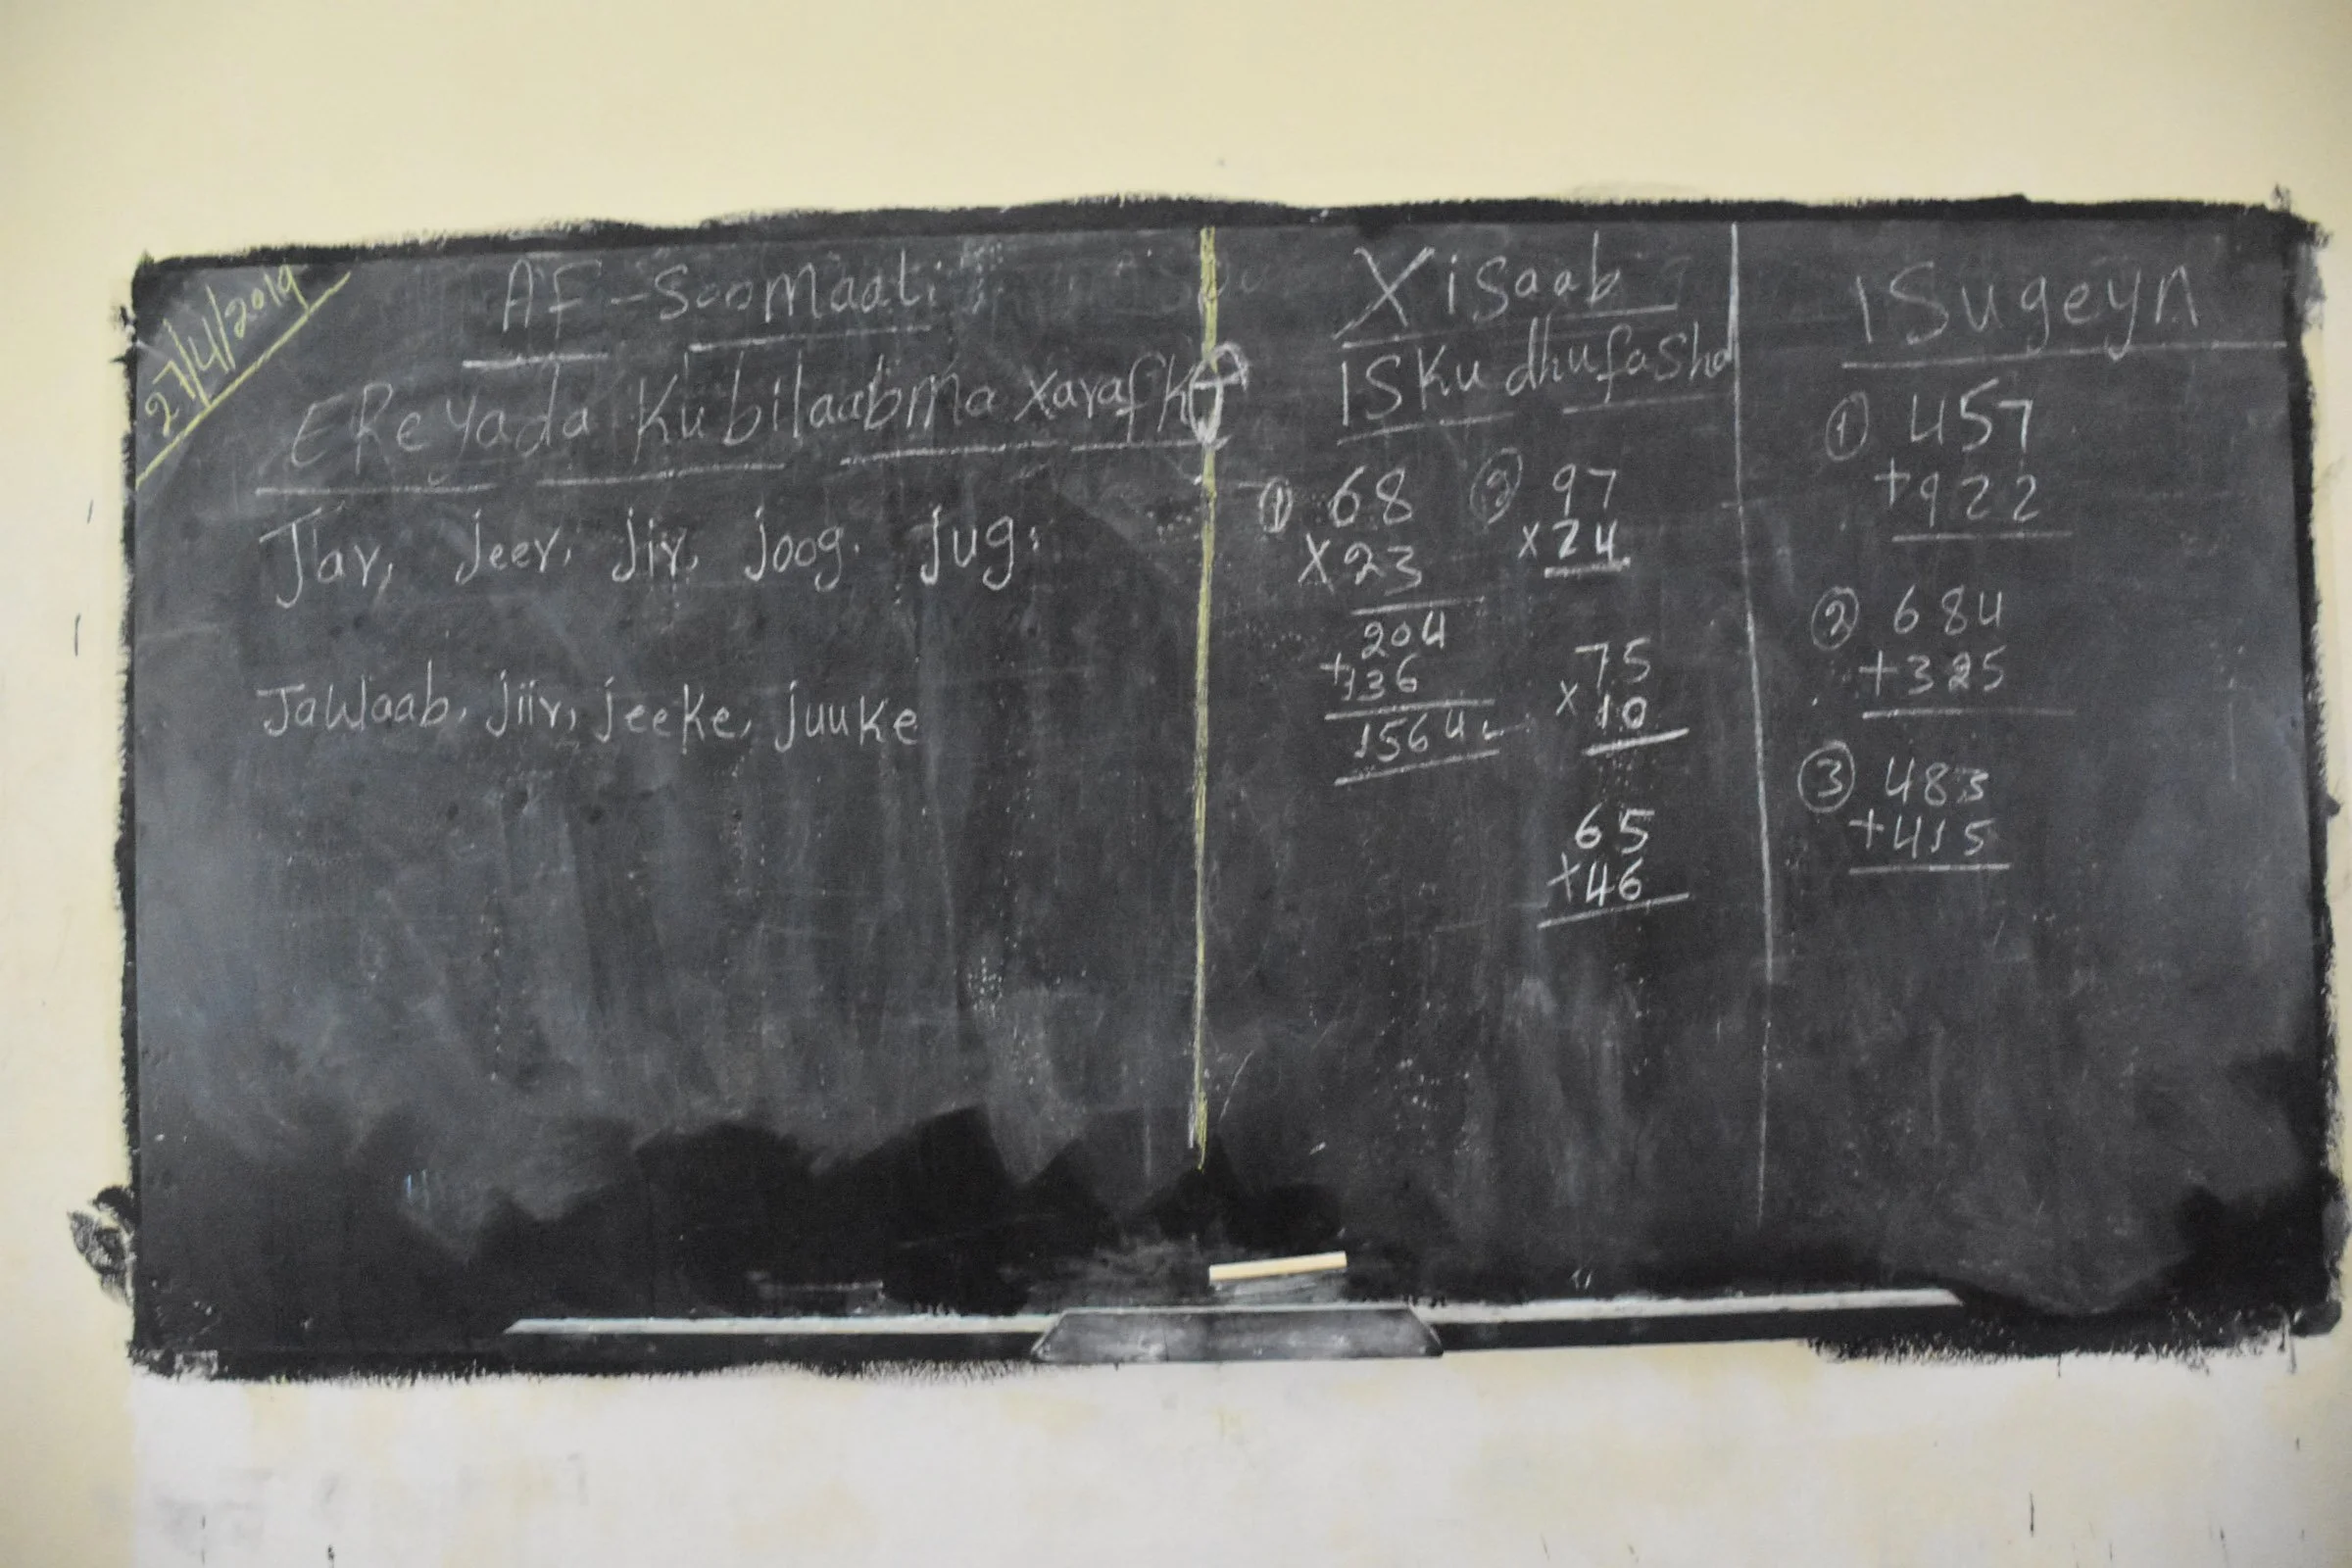 27/4/2019
AF-Soomaali
EReyada Kubilaabma xarafka J
Jar, jeer, jir, joog. jug.
Jawaab, jiir, jeeke, juuke
Xisaab
ISKu dhufasho
① 68
X 23
204
+ 136
1564
② 97
x 24
75
x 10
65
x 46
ISugeyn
① 457
+ 922
② 684
+ 325
③ 483
+ 415